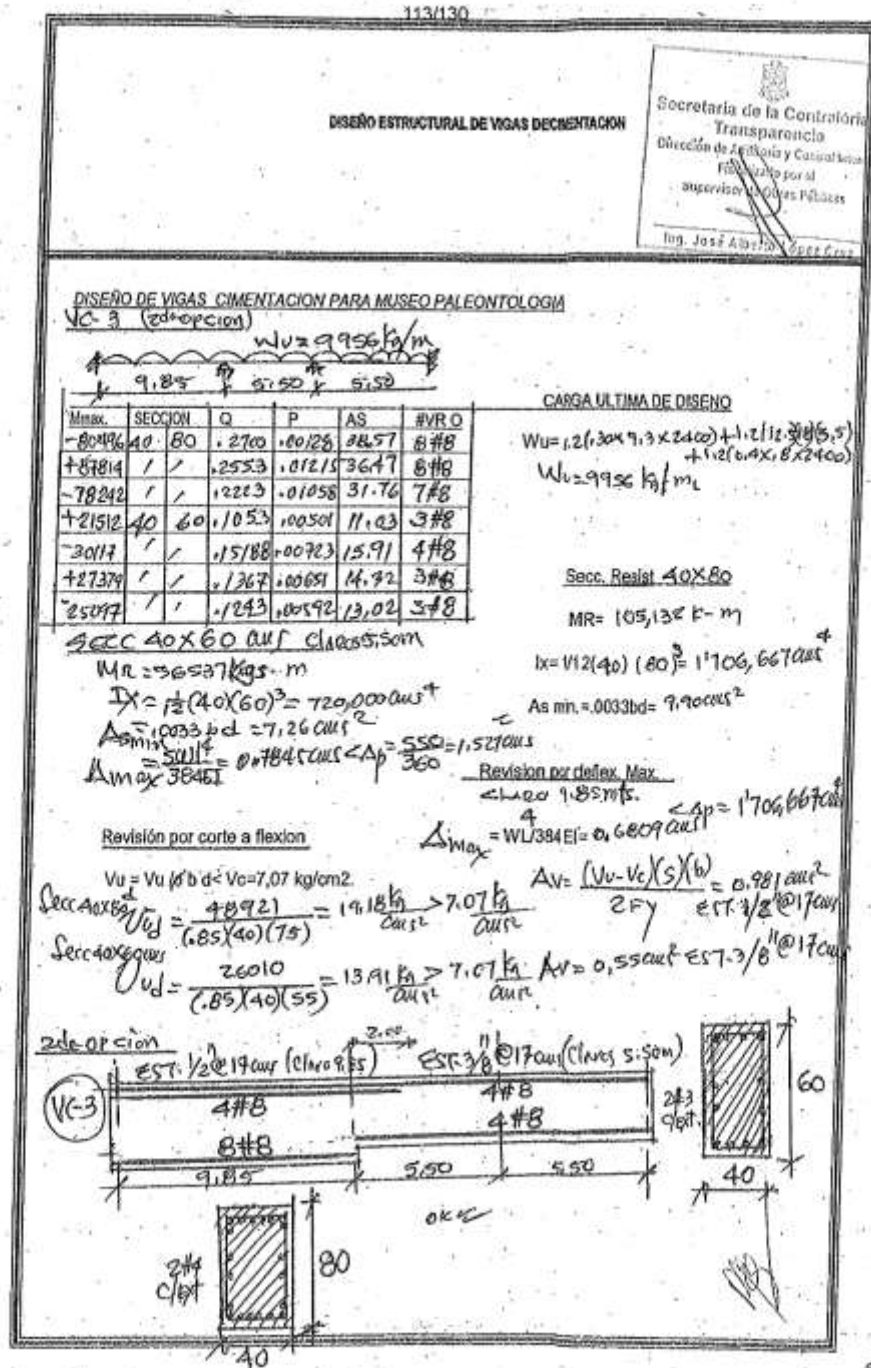 113/130
DISEÑO ESTRUCTURAL DE VIGAS DECIMENTACION
Secretaría de la Contraloría
Transparencia
Dirección de Auditoría y Control
por el
supervisor de Obras Públicas
Ing. José Alberto López Cruz
DISEÑO DE VIGAS CIMENTACION PARA MUSEO PALEONTOLOGIA
VC-3 (2da opcion)
Wu=9956 kg/m
9.85 5.50 5.50
CARGA ULTIMA DE DISEÑO
Mmax. SECCION Q P AS #VR O
-80496 40 80 .2700 .00128 38.57 8#8
+87814 / / .2553 .01215 36.47 8#8
-78242 / / .2223 .01058 31.76 7#8
+21512 40 60 .1053 .00501 11.03 3#8
-30117 / / .15188 .00723 15.91 4#8
+27379 / / .1367 .00651 14.32 3#8
-25097 / / .1243 .00592 13.02 3#8
Wu=1.2(.30x9.3x2400)+1.2(12.5)(5.5)
+1.2(0.4x.8x2400)
Wu=9956 kg/mL
Secc. Resist 40X80
MR= 105,132 k-m
Ix= 1/12(40) (80)³= 1'706,667 cms⁴
As min.=.0033bd= 9.90 cms²
SECC 40X60 cms claros 5.50m
MR=36537 kgs-m
IX=1/12(40)(60)³= 720,000 cms⁴
Asmin=.0033 bd =7,26 cms²
Δmax=5wl⁴/384EI= 0.7845 cms <Δp= 550/360 =1.527cms
Revision por deflex. Max.
claro 9.85mts.
Δmax = WL⁴/384EI= 0.6809 cms <Δp= 1'706,667 cms⁴
Revisión por corte a flexion
Vu = Vu /ø b d< Vc=7,07 kg/cm2.
Av= (Vu-Vc)(s)(b)/2Fy = 0.981 cms²
EST. 1/2"@17cms
Secc 40x80 Vud = 48921/(.85)(40)(75) = 19.18 kg/cms² >7.07 kg/cms²
Secc 40x60cms
Vud= 26010/(.85)(40)(55) = 13.91 kg/cms² > 7.07 kg/cms² Av= 0,55cms² EST.3/8"@17cms
2da opcion
2.00
EST. 1/2"@17cms (claro 9.85) EST. 3/8"@17cms (claros 5.50m)
VC-3
4#8 4#8
8#8 4#8
9.85 5.50 5.50
2#3
c/ext.
60
40
ok
2#4
c/ext
80
40